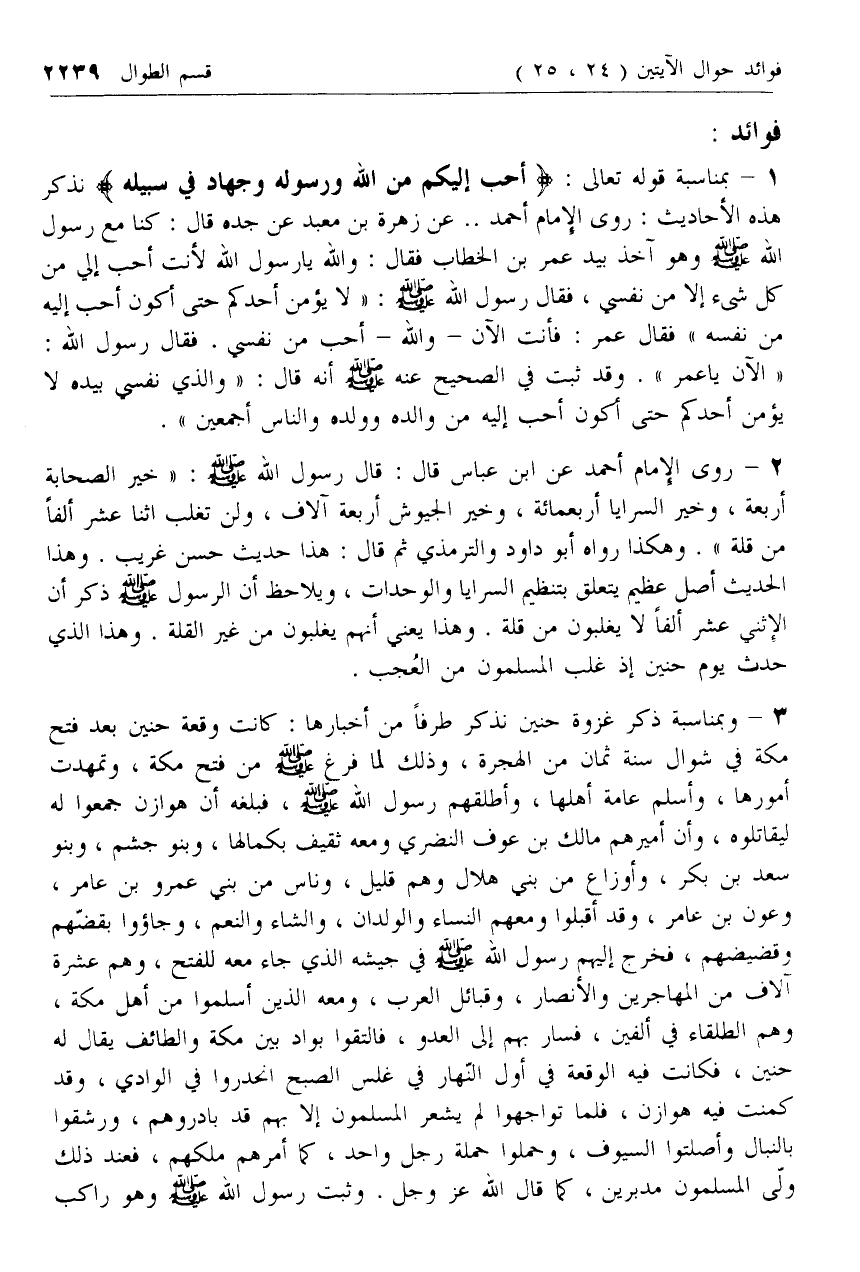 فوائد حوال الآيتين ( ٢٤ ، ٢٥ ) قسم الطوال ٢٢٣٩
فوائد :
١ – بمناسبة قوله تعالى : ﴿ أحب إليكم من الله ورسوله وجهاد في سبيله ﴾ نذكر
هذه الأحاديث : روى الإمام أحمد .. عن زهرة بن معبد عن جده قال : كنا مع رسول
الله ﷺ وهو آخذ بيد عمر بن الخطاب فقال : والله يارسول الله لأنت أحب إلي من
كل شىء إلا من نفسي ، فقال رسول الله ﷺ : « لا يؤمن أحدكم حتى أكون أحب إليه
من نفسه » فقال عمر : فأنت الآن – والله – أحب من نفسي . فقال رسول الله :
« الآن ياعمر » . وقد ثبت في الصحيح عنه ﷺ أنه قال : « والذي نفسي بيده لا
يؤمن أحدكم حتى أكون أحب إليه من والده وولده والناس أجمعين » .
٢ – روى الإمام أحمد عن ابن عباس قال : قال رسول الله ﷺ : « خير الصحابة
أربعة ، وخير السرايا أربعمائة ، وخير الجيوش أربعة آلاف ، ولن تغلب اثنا عشر ألفاً
من قلة » . وهكذا رواه أبو داود والترمذي ثم قال : هذا حديث حسن غريب . وهذا
الحديث أصل عظيم يتعلق بتنظيم السرايا والوحدات ، ويلاحظ أن الرسول ﷺ ذكر أن
الإثني عشر ألفاً لا يغلبون من قلة . وهذا يعني أنهم يغلبون من غير القلة . وهذا الذي
حدث يوم حنين إذ غلب المسلمون من العُجب .
٣ – وبمناسبة ذكر غزوة حنين نذكر طرفاً من أخبارها : كانت وقعة حنين بعد فتح
مكة في شوال سنة ثمان من الهجرة ، وذلك لما فرغ ﷺ من فتح مكة ، وتمهدت
أمورها ، وأسلم عامة أهلها ، وأطلقهم رسول الله ﷺ ، فبلغه أن هوازن جمعوا له
ليقاتلوه ، وأن أميرهم مالك بن عوف النضري ومعه ثقيف بكمالها ، وبنو جشم ، وبنو
سعد بن بكر ، وأوزاع من بني هلال وهم قليل ، وناس من بني عمرو بن عامر ،
وعون بن عامر ، وقد أقبلوا ومعهم النساء والولدان ، والشاء والنعم ، وجاؤوا بقضّهم
وقضيضهم ، فخرج إليهم رسول الله ﷺ في جيشه الذي جاء معه للفتح ، وهم عشرة
آلاف من المهاجرين والأنصار ، وقبائل العرب ، ومعه الذين أسلموا من أهل مكة ،
وهم الطلقاء في ألفين ، فسار بهم إلى العدو ، فالتقوا بواد بين مكة والطائف يقال له
حنين ، فكانت فيه الوقعة في أول النّهار في غلس الصبح انحدروا في الوادي ، وقد
كمنت فيه هوازن ، فلما تواجهوا لم يشعر المسلمون إلا بهم قد بادروهم ، ورشقوا
بالنبال وأصلتوا السيوف ، وحملوا حملة رجل واحد ، كما أمرهم ملكهم ، فعند ذلك
ولّى المسلمون مدبرين ، كما قال الله عز وجل . وثبت رسول الله ﷺ وهو راكب